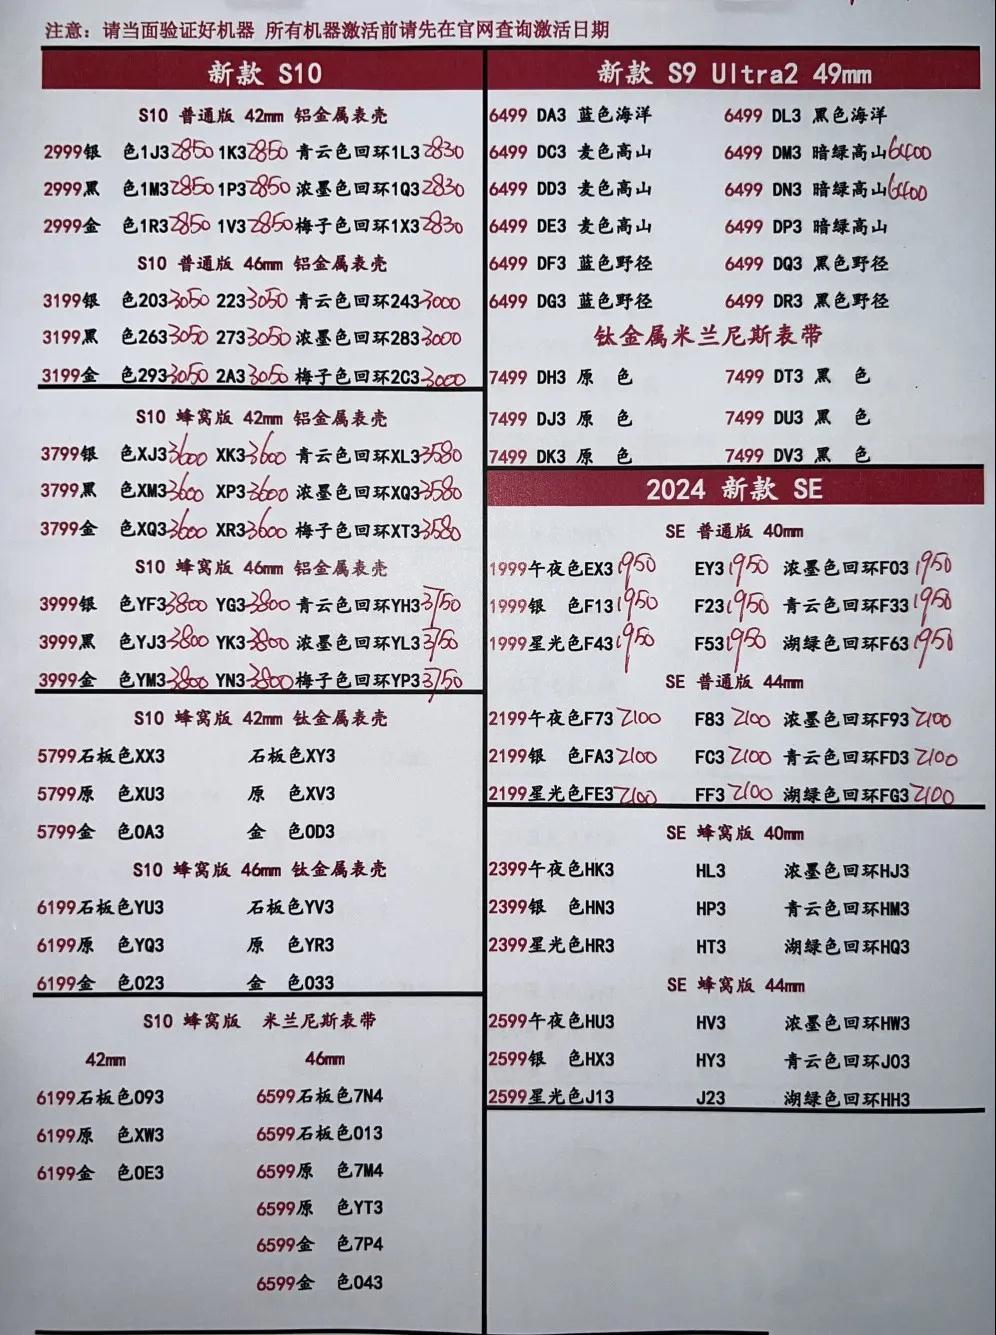 注意：请当面验证好机器 所有机器激活前请先在官网查询激活日期
新款 S10
S10 普通版 42mm 铝金属表壳
2999银 色1J3 2850 1K3 2850 青云色回环1L3 2830
2999黑 色1M3 2850 1P3 2850 浓墨色回环1Q3 2830
2999金 色1R3 2850 1V3 2850 梅子色回环1X3 2830
S10 普通版 46mm 铝金属表壳
3199银 色203 3050 223 3050 青云色回环243 3000
3199黑 色263 3050 273 3050 浓墨色回环283 3000
3199金 色293 3050 2A3 3050 梅子色回环2C3 3000
S10 蜂窝版 42mm 铝金属表壳
3799银 色XJ3 3600 XK3 3600 青云色回环XL3 3580
3799黑 色XM3 3600 XP3 3600 浓墨色回环XQ3 3580
3799金 色XQ3 3600 XR3 3600 梅子色回环XT3 3580
S10 蜂窝版 46mm 铝金属表壳
3999银 色YF3 3800 YG3 3800 青云色回环YH3 3750
3999黑 色YJ3 3800 YK3 3800 浓墨色回环YL3 3750
3999金 色YM3 3800 YN3 3800 梅子色回环YP3 3750
S10 蜂窝版 42mm 钛金属表壳
5799石板色XX3 石板色XY3
5799原 色XU3 原 色XV3
5799金 色0A3 金 色0D3
S10 蜂窝版 46mm 钛金属表壳
6199石板色YU3 石板色YV3
6199原 色YQ3 原 色YR3
6199金 色023 金 色033
S10 蜂窝版 米兰尼斯表带
42mm 46mm
6199石板色093 6599石板色7N4
6199原 色XW3 6599石板色013
6199金 色0E3 6599原 色7M4
6599原 色YT3
6599金 色7P4
6599金 色043
新款 S9 Ultra2 49mm
6499 DA3 蓝色海洋 6499 DL3 黑色海洋
6499 DC3 麦色高山 6499 DM3 暗绿高山 6400
6499 DD3 麦色高山 6499 DN3 暗绿高山 6400
6499 DE3 麦色高山 6499 DP3 暗绿高山
6499 DF3 蓝色野径 6499 DQ3 黑色野径
6499 DG3 蓝色野径 6499 DR3 黑色野径
钛金属米兰尼斯表带
7499 DH3 原 色 7499 DT3 黑 色
7499 DJ3 原 色 7499 DU3 黑 色
7499 DK3 原 色 7499 DV3 黑 色
2024 新款 SE
SE 普通版 40mm
1999午夜色EX3 1950 EY3 1950 浓墨色回环F03 1950
1999银 色F13 1950 F23 1950 青云色回环F33 1950
1999星光色F43 1950 F53 1950 湖绿色回环F63 1950
SE 普通版 44mm
2199午夜色F73 2100 F83 2100 浓墨色回环F93 2100
2199银 色FA3 2100 FC3 2100 青云色回环FD3 2100
2199星光色FE3 2100 FF3 2100 湖绿色回环FG3 2100
SE 蜂窝版 40mm
2399午夜色HK3 HL3 浓墨色回环HJ3
2399银 色HN3 HP3 青云色回环HM3
2399星光色HR3 HT3 湖绿色回环HQ3
SE 蜂窝版 44mm
2599午夜色HU3 HV3 浓墨色回环HW3
2599银 色HX3 HY3 青云色回环J03
2599星光色J13 J23 湖绿色回环HH3